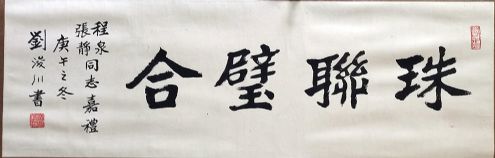 珠聯璧合
程泉
張静同志嘉禮
庚午之冬
劉浚川書